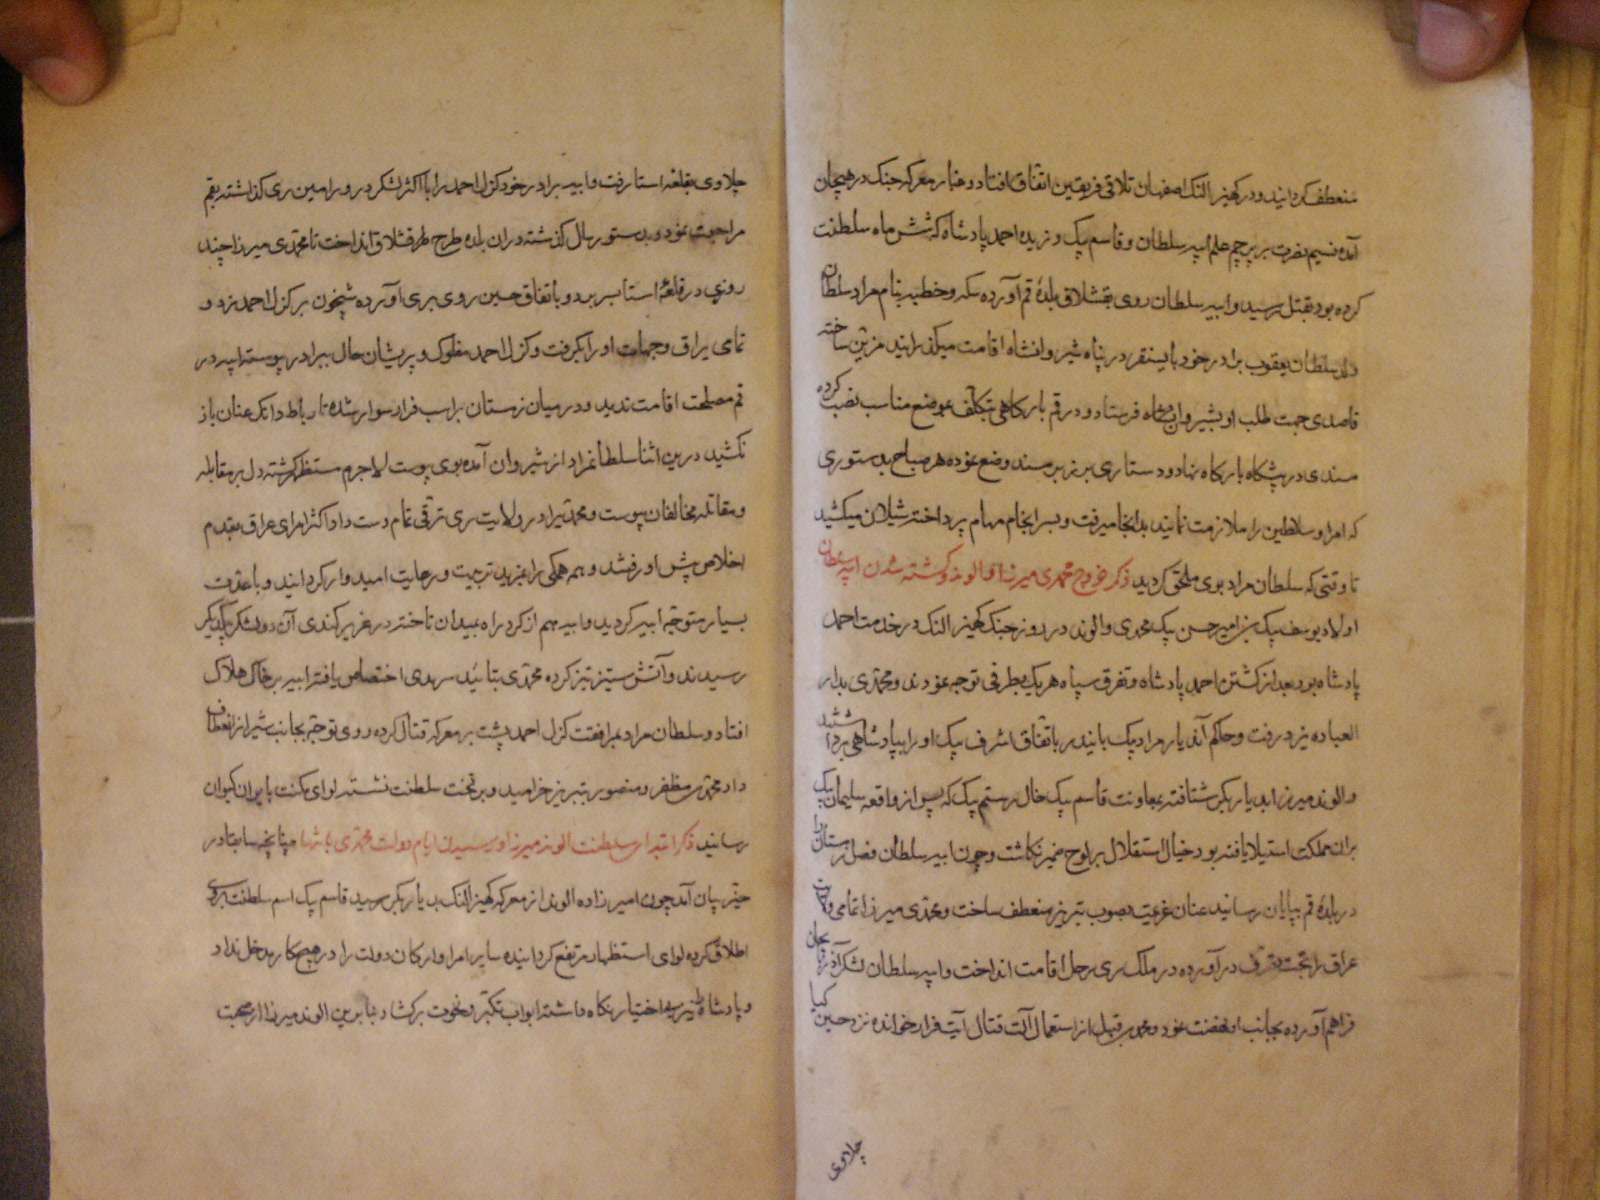 منعطف گردانید و در کهنر النک اصفهان تلاقی فریقین اتفاق افتاد و غبار معرکه جنک در هیجان
آمده نسیم نصرت بر پرچم علم ایبه سلطان و قاسم بیک وزیده احمد پادشاه که شش ماه سلطنت
کرده بود بقتل رسید و ابیه سلطان روی بقشلاق بلدهٔ قم آورده سکه و خطبه بنام مراد سلطان
ولد سلطان یعقوب برادر خود بایسنقر در پناه شیروانشاه اقامت میکذرانید مزین ساخته
قاصدی جهت طلب او بشیروان شاه فرستاد و در قم بارکاهی بتکلف بموضع مناسب نصب کرده
مسندی در پیشکاه بارکاه نهاد و دستاری بر زبر مسند وضع نموده هر صباح بدستوری
که امرا و سلاطین را ملازمت نمایند بدانجا میرفت و بسرانجام مهام پرداخته شیلان میکشید
تا وقتی که سلطان مراد بوی ملحق کردید ذکر خروج محمدی میرزا و الوند و کشته شدن ایبه سلطان
اولاد یوسف بیک بن امیر حسن بیک محمدی و الوند در روز جنک کهنر النک در خدمت احمد
پادشاه بود بعد از کشتن احمد پادشاه و تفرق سپاه هر یک بطرفی توجه نمودند و محمدی بدار
العباده یزد رفت و حاکم آن دیار مراد بیک بایندر باتفاق اشرف بیک او را بپادشاهی برداشتند
و الوند میرزا بدیار بکر شتافته بمعاونت قاسم بیک خال رستم بیک که پس از واقعه سلیمان بیک
بران مملکت استیلا یافته بود خیال استقلال بر لوح ضمیر نکاشت و چون ابیه سلطان فصل زمستان را
در بلدهٔ قم بپایان رسانید عنان عزیمت بصوب تبریز منعطف ساخت و محمدی میرزا تمامی ولایت
عراق را تحت تصرف درآورده در ملک ری رحل اقامت انداخت و ایبه سلطان لشکر آذربایجان
فراهم آورده بجانب او نهضت نمود و محمدی قبل از استعمال آلت قتال آیت فرار خوانده نزد حسین کیا
چلاوی
چلاوی بقلعه استا رفت و ابیه برادر خود کزل احمد را با اکثر لشکر در ورامین ری کذاشته بقم
مراجعت نمود و بدستور سال کذشته دران بلده طرح قشلاق انداخت تا محمدی میرزا چند
روزی در قلعهٔ استا بسر برد و باتفاق حسین روی بری آورده شبخون بر کزل احمد زد و
تمامی یراق و جهات او را بکرفت و کزل احمد مفلوک و پریشان حال ببرادر پیوسته ایبه در
قم مصلحت اقامت ندید و در میان زمستان بر اسب فرار سوار شده تا رباط دانک عنان باز
نکشید درین اثنا سلطانمراد از شیروان آمده بوی پیوست لاجرم مستظهر کشته دل بر مقابله
و مقاتله مخالفان پیوست و محمدی را در ولایت ری ترقی تمام دست داد اکثر امرای عراق بقدم
اخلاص پیش او رفتند و همه همکی را بمزید تربیت و رعایت امیدوار کردانید و با عدت
بسیار متوجه ابیه کردید و ابیه هم از کرد راه بمیدان تاخته در عزیز کندی آن دو لشکر بیکدیکر
رسیدند و آتش ستیز تیز کرده محمدی بتائید سرمدی اختصاص یافته ابیه بر خاک هلاک
افتاد و سلطان مراد بمرافقت کزل احمد پشت بر معرکه قتال کرده روی توجه بجانب شیراز انعطاف
داد محمدی مظفر و منصور بتبریز خرامید و بر تخت سلطنت نشسته لوای مکنت بایوان کیوان
رسانید ذکر ابتداء سلطنت الوند میرزا و رسیدن ایام دولت محمدی بانتها چنانچه سابقا در
حیز بیان آمد چون امیرزاده الوند از معرکه کهنر النک بدیار بکر رسید قاسم بیک اسم سلطنت بروی
اطلاق کرده لوای استظهار مرتفع کردانیده سایر امرا و ارکان دولت را در هیچ کار مدخل نداد
و پادشاه را نیز بی اختیار نکاه داشته ابواب تکبر و نخوت برکشاد بنابرین الوند میرزا از صحبت